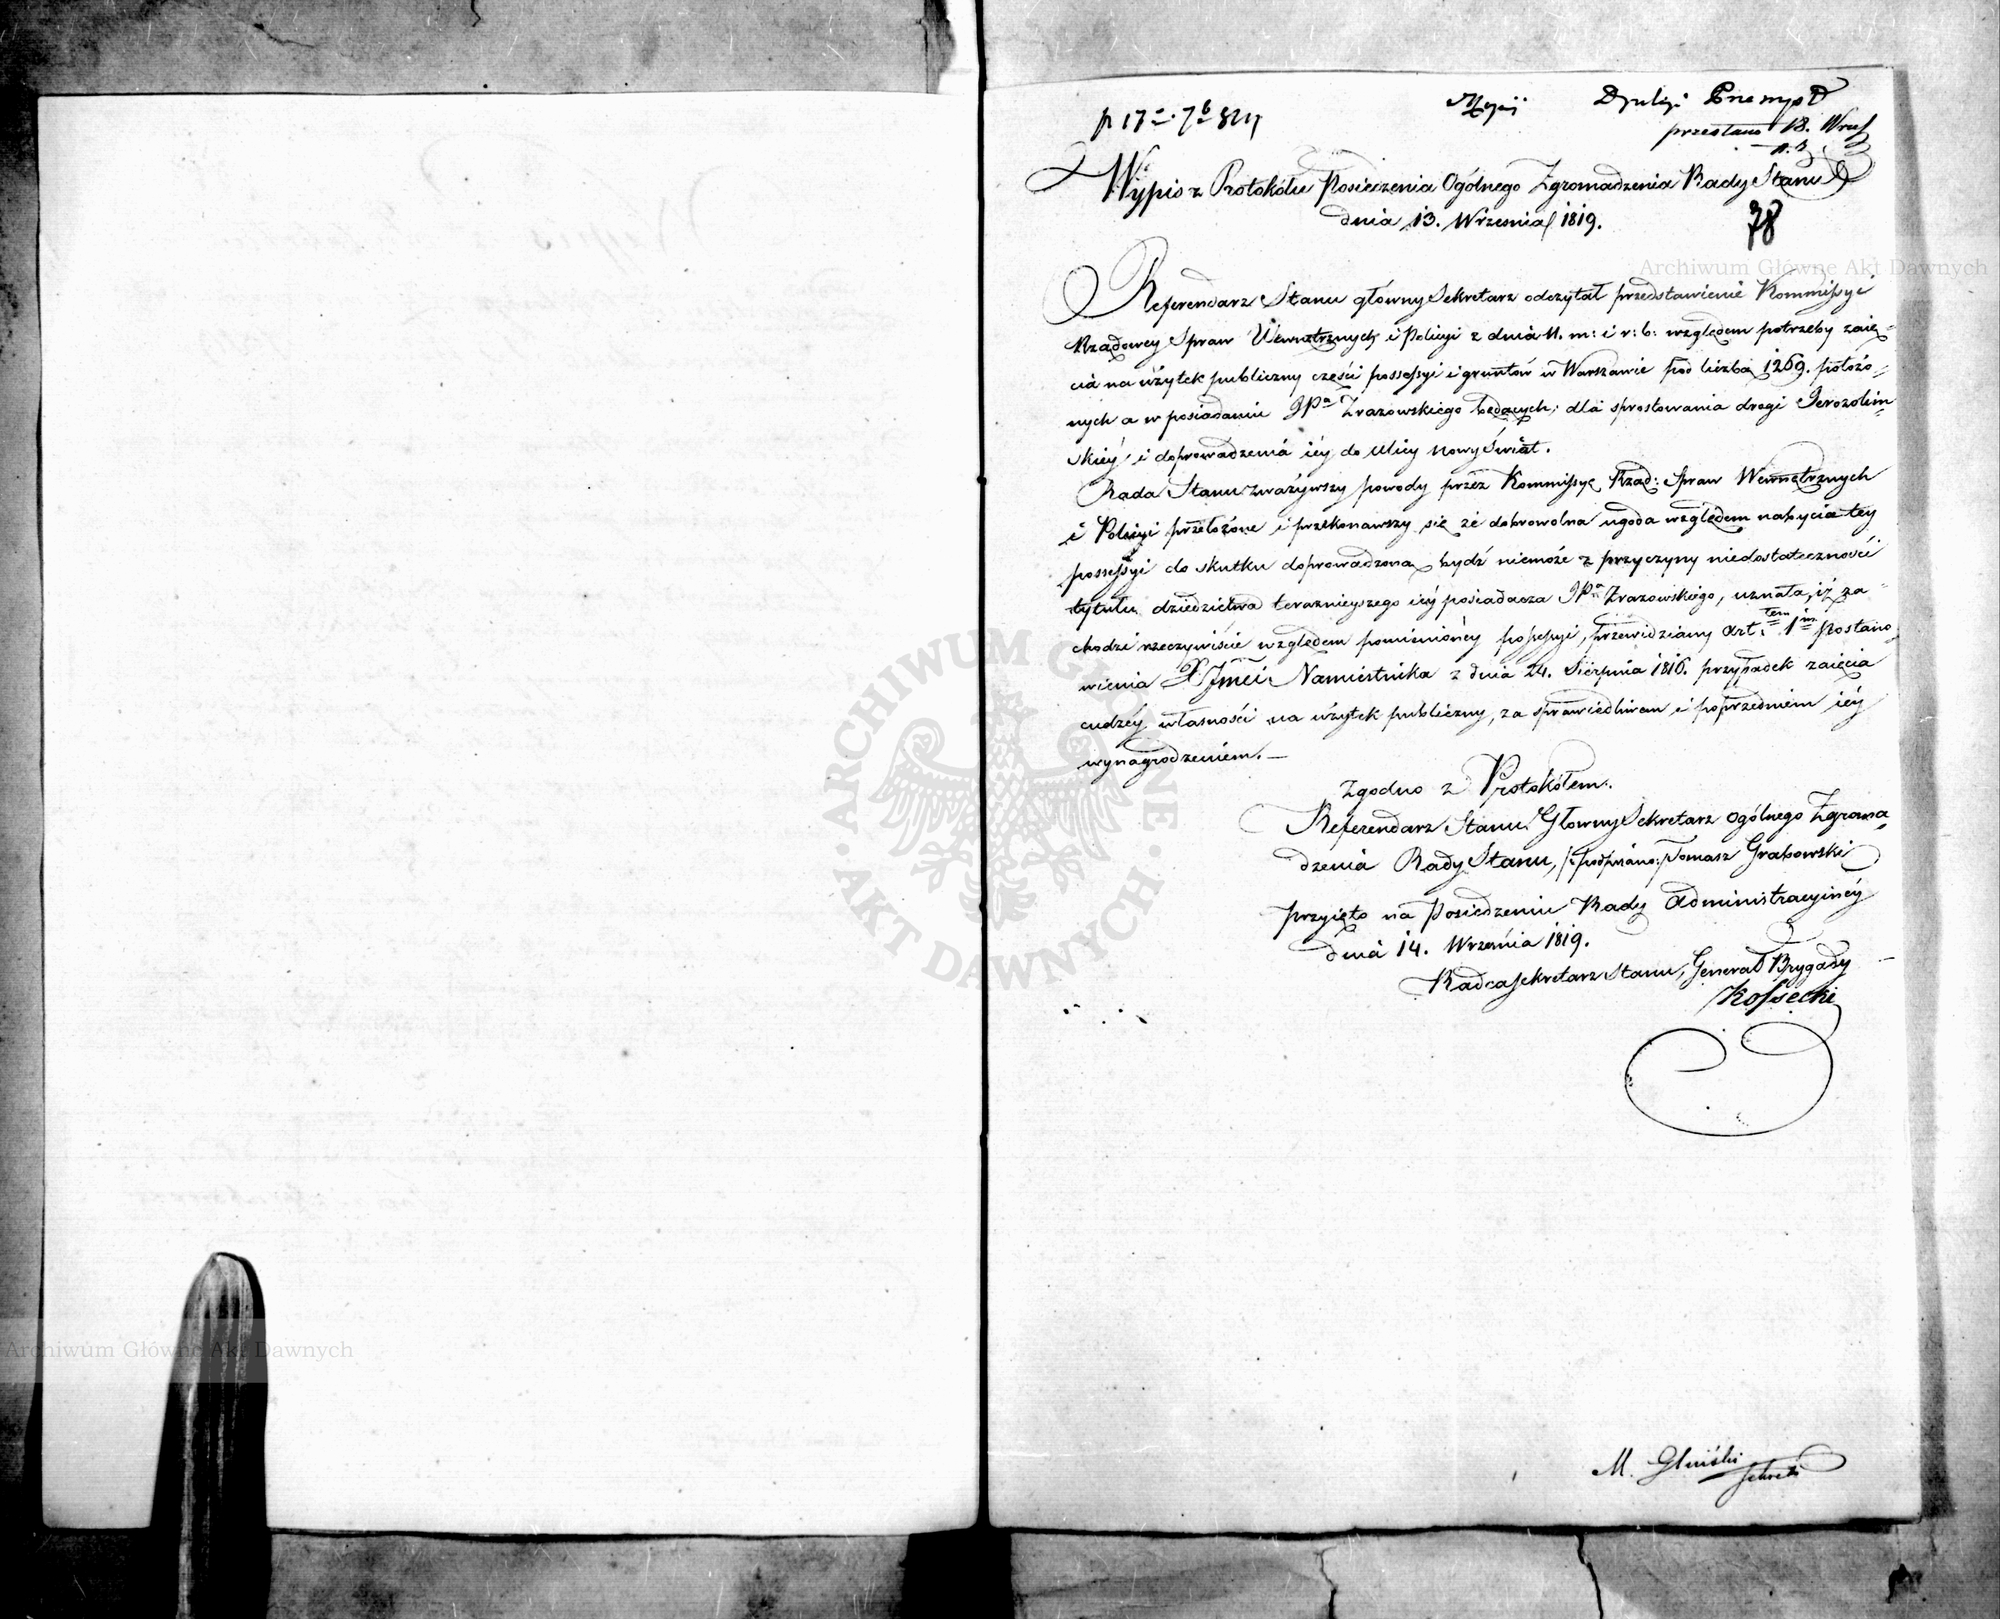 Wypis z Protokółu Posiedzenia Ogólnego Zgromadzenia Rady Stanu
dnia 13. Września 1819.
78
Archiwum Główne Akt Dawnych
Referendarz Stanu główny Sekretarz odczytał przedstawienie Kommissyi
Rządowey Spraw Wewnętrznych i Policyi z dnia 11. m: i r: b: względem potrzeby zaię=
cia na użytek publiczny części possessyi i gruntów w Warszawie pod liczbą 1269. położo=
nych a w posiadaniu JPa Zrazowskiego będących; dla sprostowania drogi Jerozolim=
skiéy i doprowadzenia iéy do Ulicy Nowy Świat.
Rada Stanu zważywszy powody przez Kommissyę Rząd: Spraw Wewnętrznych
i Policyi przełożone i przekonawszy się że dobrowolna ugoda względem nabycia tey
possessyi do skutku doprowadzona bydź niemoże z przyczyny niedostateczności
tytułu dziedzictwa teraznieyszego iéy posiadacza JPa Zrazowskiego, uznała, iż za=
chodzi rzeczywiście względem pomienionéy possessyi, przewidziany Art: tem 1m Postano=
wienia X Jmci Namiestnika z dnia 24. Sierpnia 1816. przypadek zaięcia
cudzéy własności na użytek publiczny, za sprawiedliwem i poprzedniem iéy
wynagrodzeniem. —
Zgodno z Protokółem.
Referendarz Stanu Główny Sekretarz Ogólnego Zgroma=
dzenia Rady Stanu, /:podpisano:/ Tomasz Grabowski
przyięto na Posiedzeniu Rady Administracyinéy
dnia 14. Września 1819.
Radca Sekretarz Stanu, Generał Brygady
Kossecki
ARCHIWUM GŁÓWNE AKT DAWNYCH
Archiwum Główne Akt Dawnych
M. Gliński